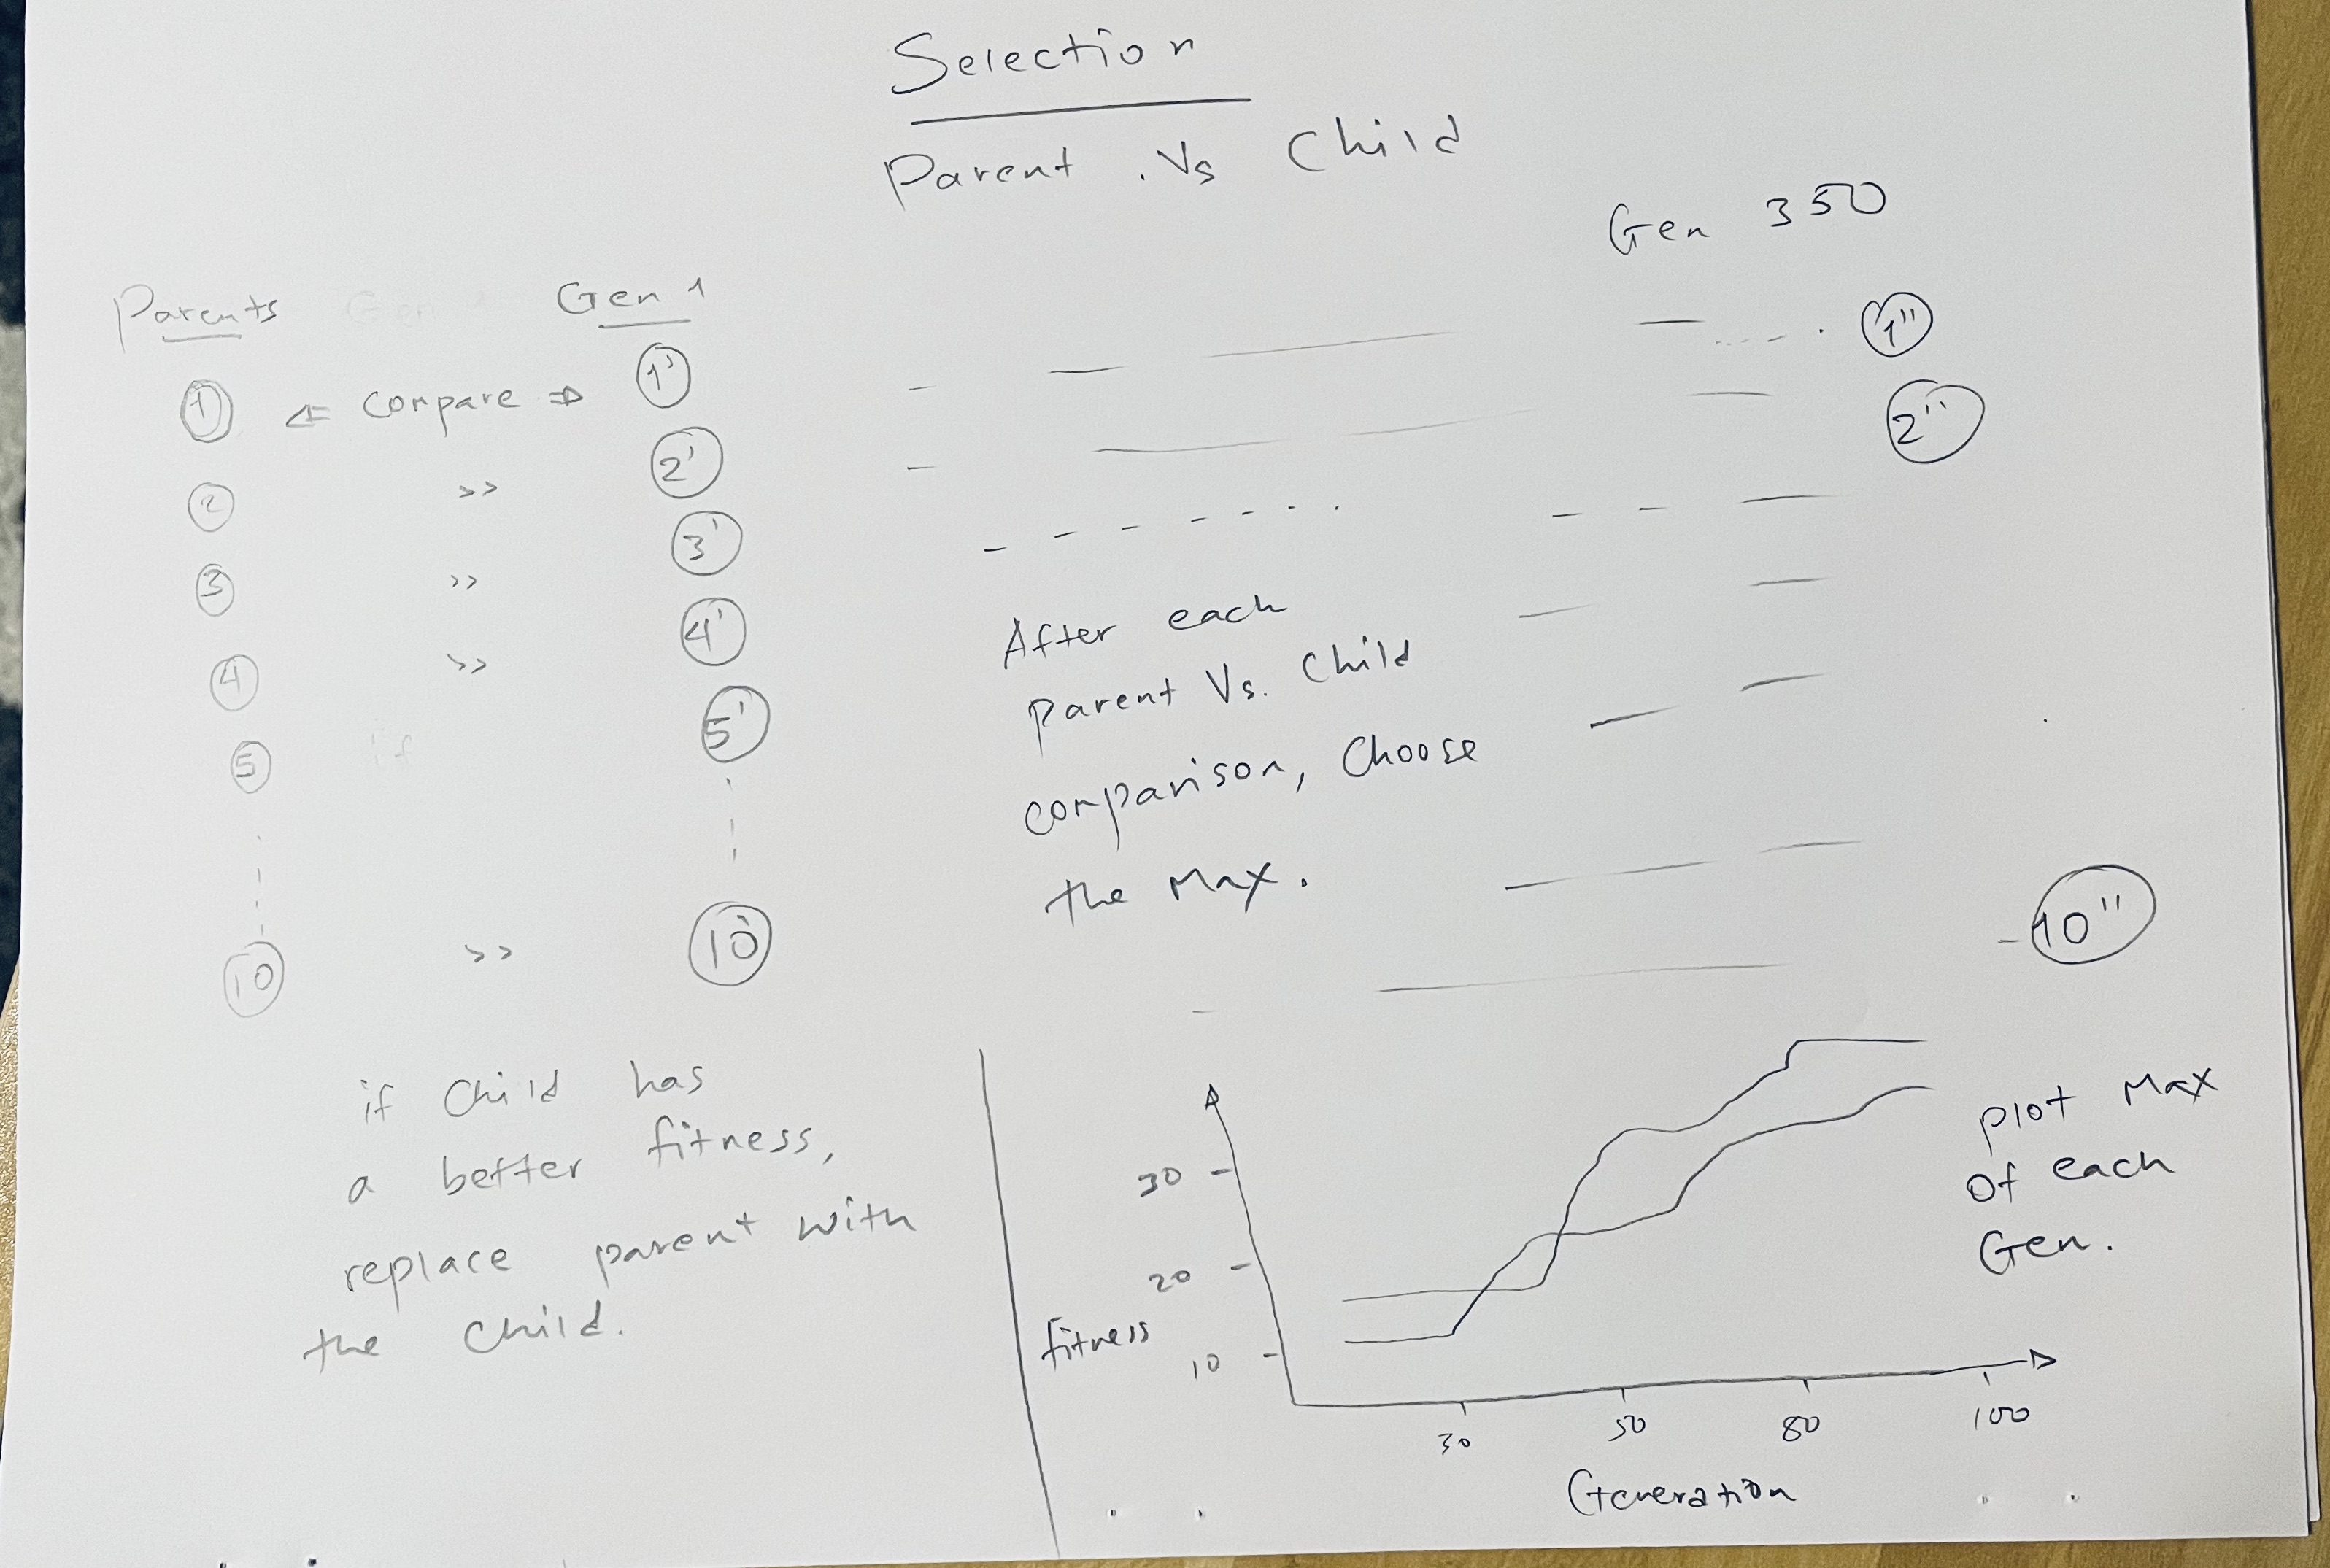 Selection
Parent . Vs Child
Gen 350
Parents Gen 1
1 <= compare => 1'
2 >> 2'
3 >> 3'
4 >> 4'
5 if 5'
10 >> 10'
1''
2''
10''
After each
parent Vs. Child
comparison, Choose
the Max.
if Child has
a better fitness,
replace parent with
the Child.
30
20
10
fitness
30 50 80 100
Generation
plot Max
Of each
Gen.